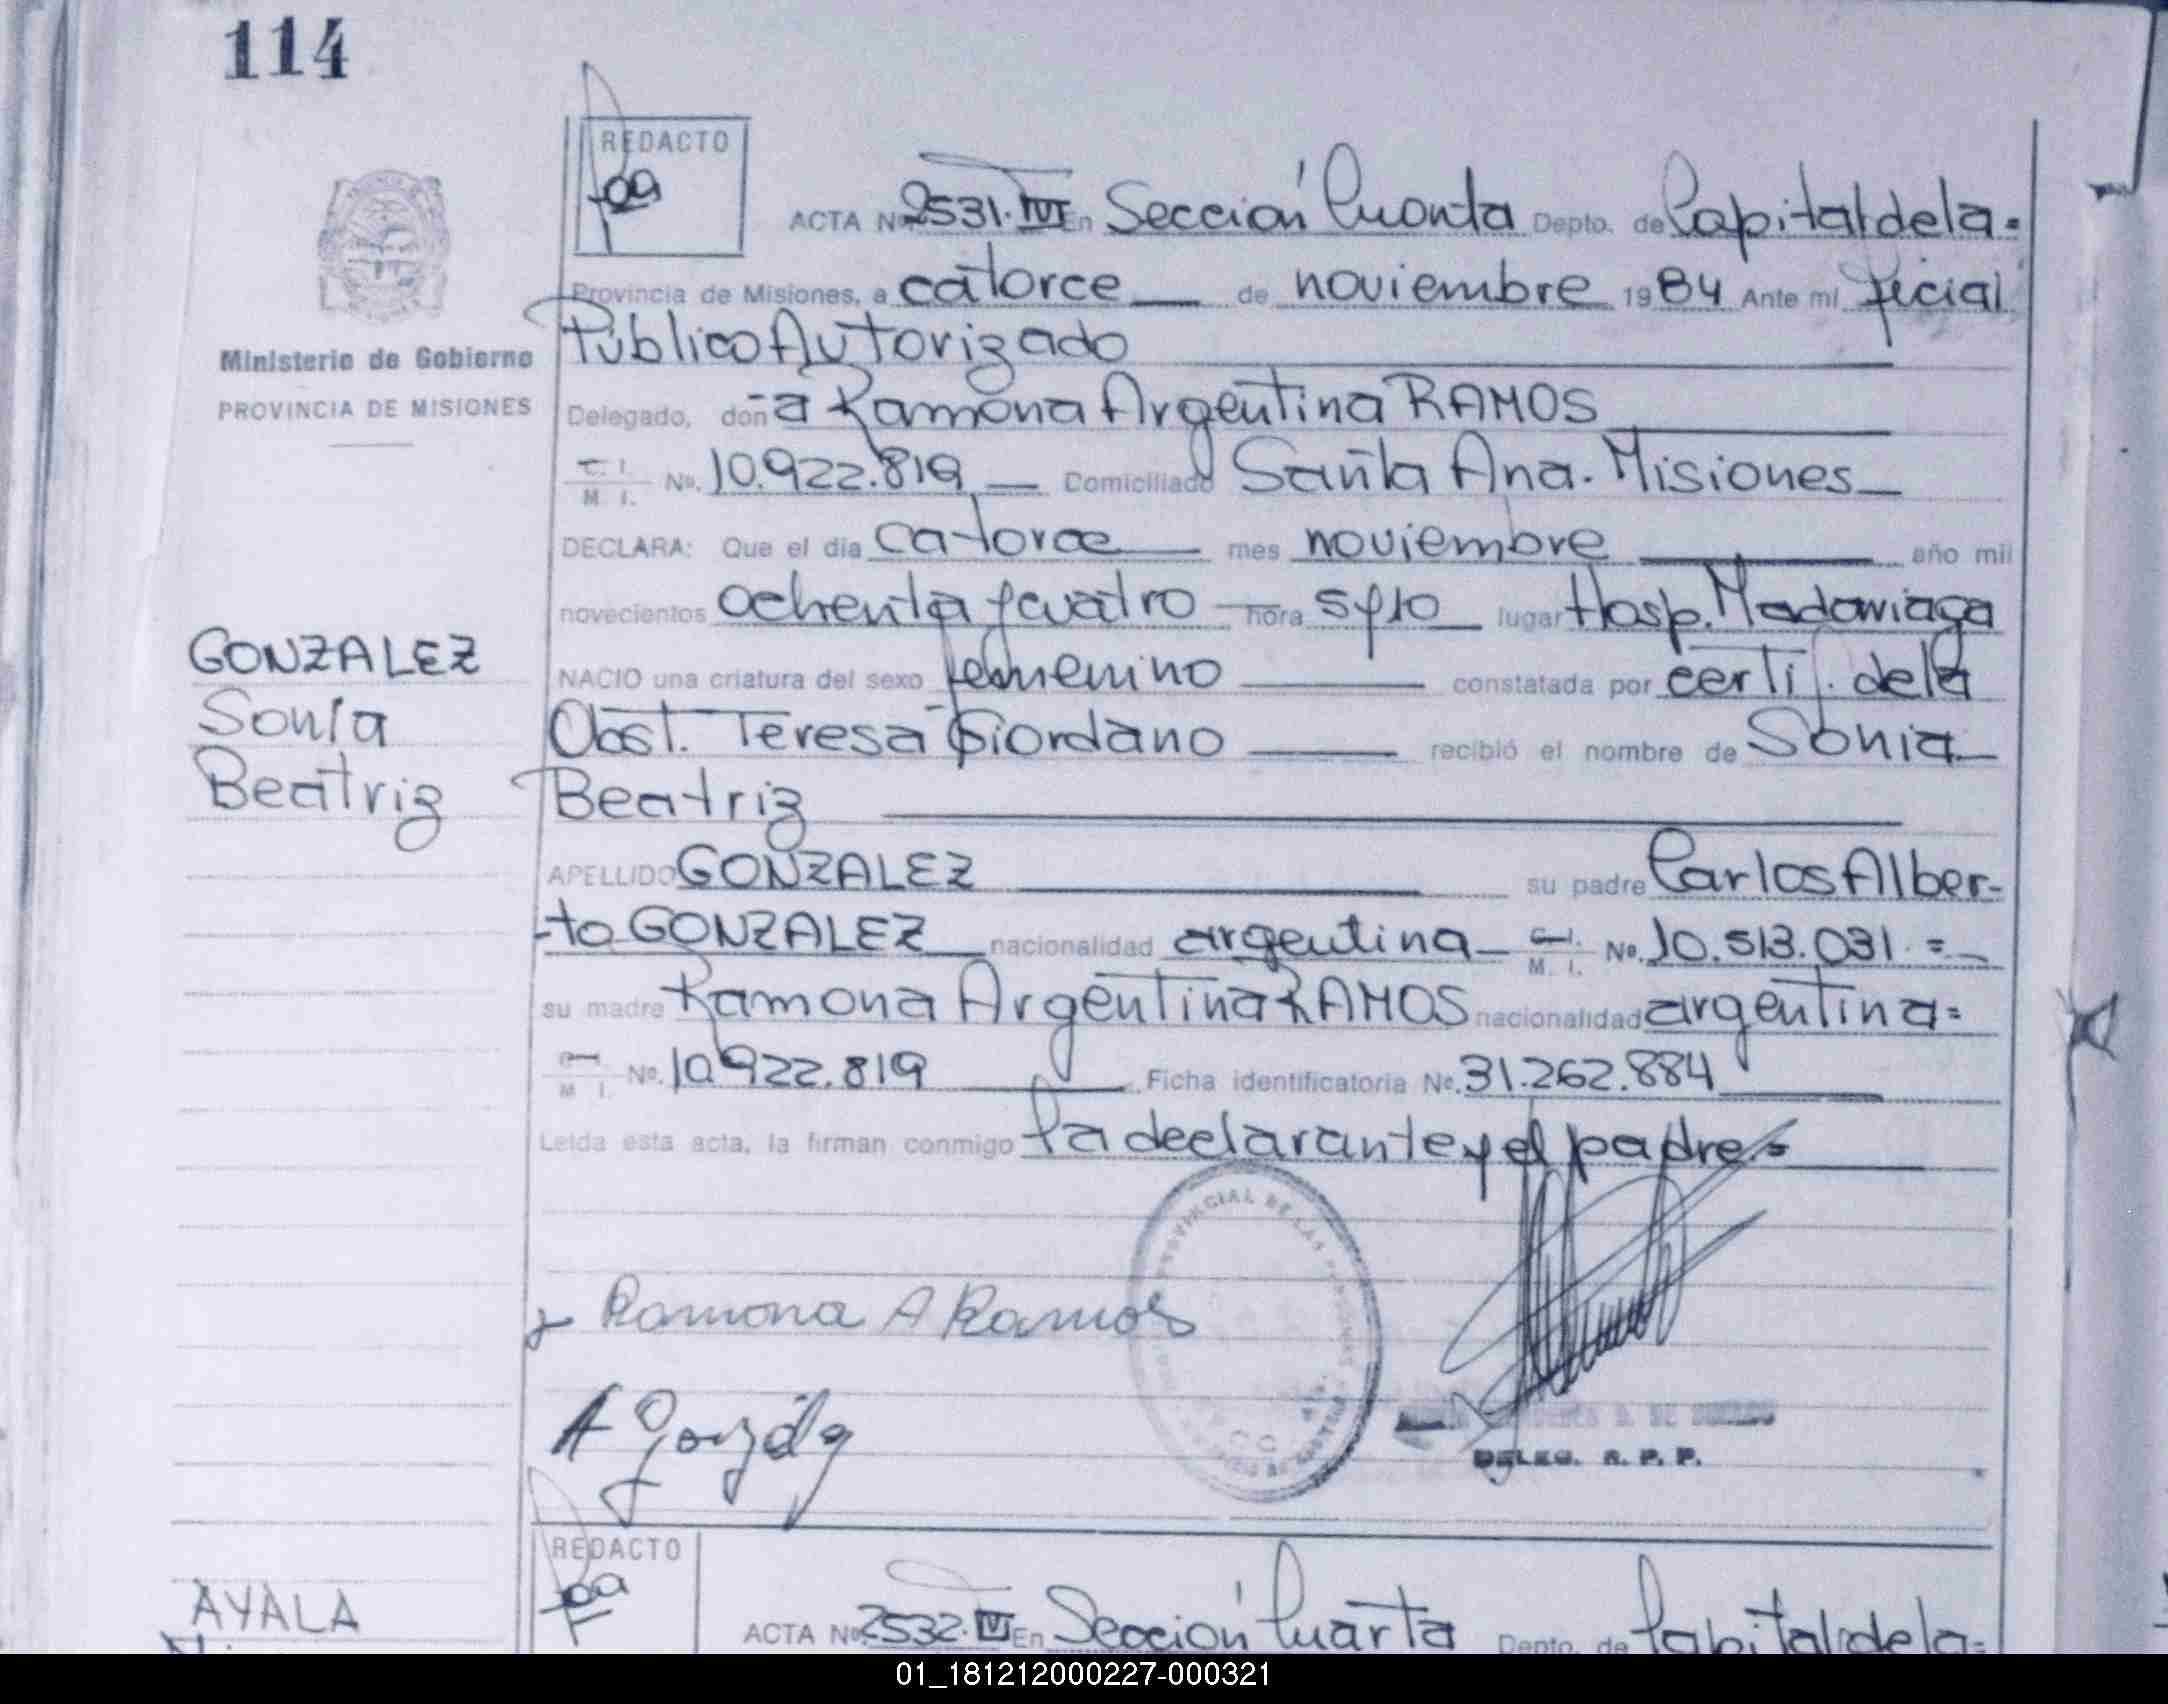 114
REDACTO
ACTA Nº 2531.IV En Sección Cuarta Depto. de Capital de la =
Provincia de Misiones, a catorce de noviembre 1984 Ante mí Oficial
Público Autorizado
Ministerio de Gobierno
PROVINCIA DE MISIONES
Delegado, don-a Ramona Argentina RAMOS
C. I. M. I. Nº. 10.922.819 Domiciliado Santa Ana. Misiones
DECLARA: Que el día catorce mes noviembre año mil
novecientos ochenta y cuatro hora 5 y 10 lugar Hosp. Madariaga
GONZALEZ
Sonia
Beatriz
NACIO una criatura del sexo femenino constatada por certif. de la
Obst. Teresa Giordano recibió el nombre de Sonia
Beatriz
APELLIDO GONZALEZ su padre Carlos Alber-
-to GONZALEZ nacionalidad argentina C. I. M. I. Nº. 10.513.031.=
su madre Ramona Argentina RAMOS nacionalidad argentina=
C. I. M. I. Nº. 10.922.819 Ficha identificatoria Nº. 31.262.884
Leída esta acta, la firman conmigo la declarante y el padre.=
Ramona A Ramos
A González
DELEG. R. P. P.
REDACTO
AYALA
ACTA Nº 2532.IV En Sección Cuarta Depto. de Capital de la=
01_181212000227-000321